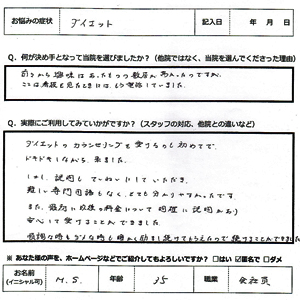 お悩みの症状 ダイエット 記入日 年 月 日
Q. 何が決め手となって当院を選びましたか？（他院ではなく、当院を選んでくださった理由）
前から興味はあったもののつ敷居が高かったですが、
ここは看板を見たときには、もう電話していました。
Q. 実際にご利用してみていかがですか？（スタッフの対応、他院との違いなど）
ダイエットのカウンセリングを受けるのも初めてで、
ドキドキしながら来ました。
しかし、説明していただき、
難しい専門用語もなく、とても分かりやすかったです。
また、最初に料金について明確に説明があり
安心して受けることができました。
※ あなた様の声を、ホームページなどでご紹介してもよろしいですか？ □はい ☑匿名で □ダメ
お名前（イニシャル可） M.S. 年齢 35 職業 会社員